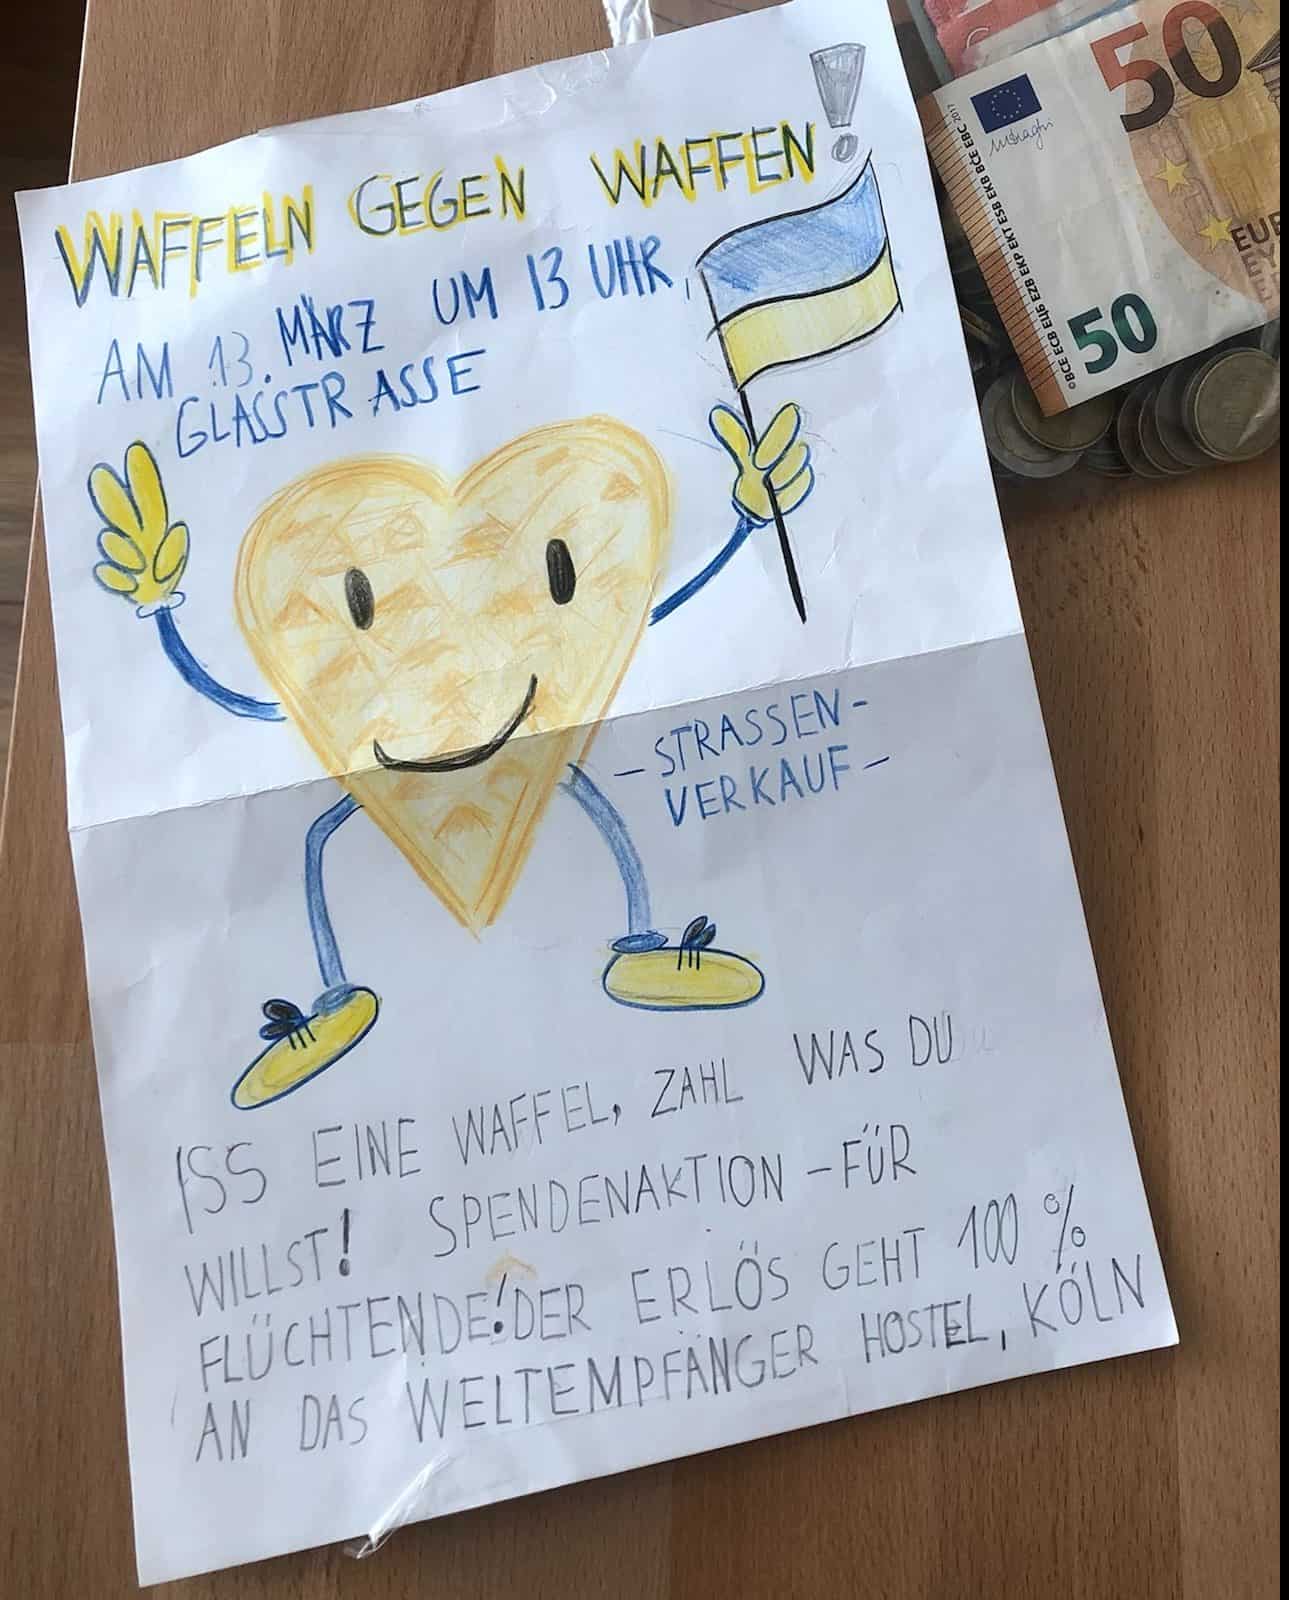 WAFFELN GEGEN WAFFEN!
AM 13. MÄRZ UM 13 UHR,
GLASSTRASSE
- STRASSEN-
VERKAUF-
ISS EINE WAFFEL, ZAHL WAS DU
WILLST! SPENDENAKTION - FÜR
FLÜCHTENDE! DER ERLÖS GEHT 100 %
AN DAS WELTEMPFÄNGER HOSTEL, KÖLN
50
©BCE ECB EЦБ EZB EKP EKT ESB EKB BĊE EBC 2017
50
EUR